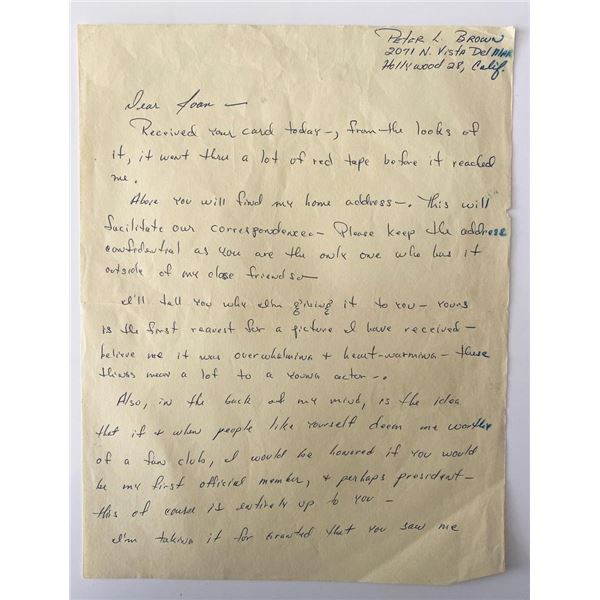 Peter L. Brown
2071 N. Vista Del Mar
Hollywood 28, Calif.
Dear Joan –
Received your card today –, from the looks of
it, it went thru a lot of red tape before it reached
me.
Above you will find my home address –. This will
facilitate our correspondence – Please keep the address
confidential as you are the only one who has it
outside of my close friends –
I'll tell you why I'm giving it to you – yours
is the first request for a picture I have received –
believe me it was overwhelming + heart-warming – these
things mean a lot to a young actor –.
Also, in the back of my mind, is the idea
that if + when people like yourself deem me worthy
of a fan club, I would be honored if you would
be my first official member, + perhaps president –
this of course is entirely up to you –
I'm taking it for granted that you saw me